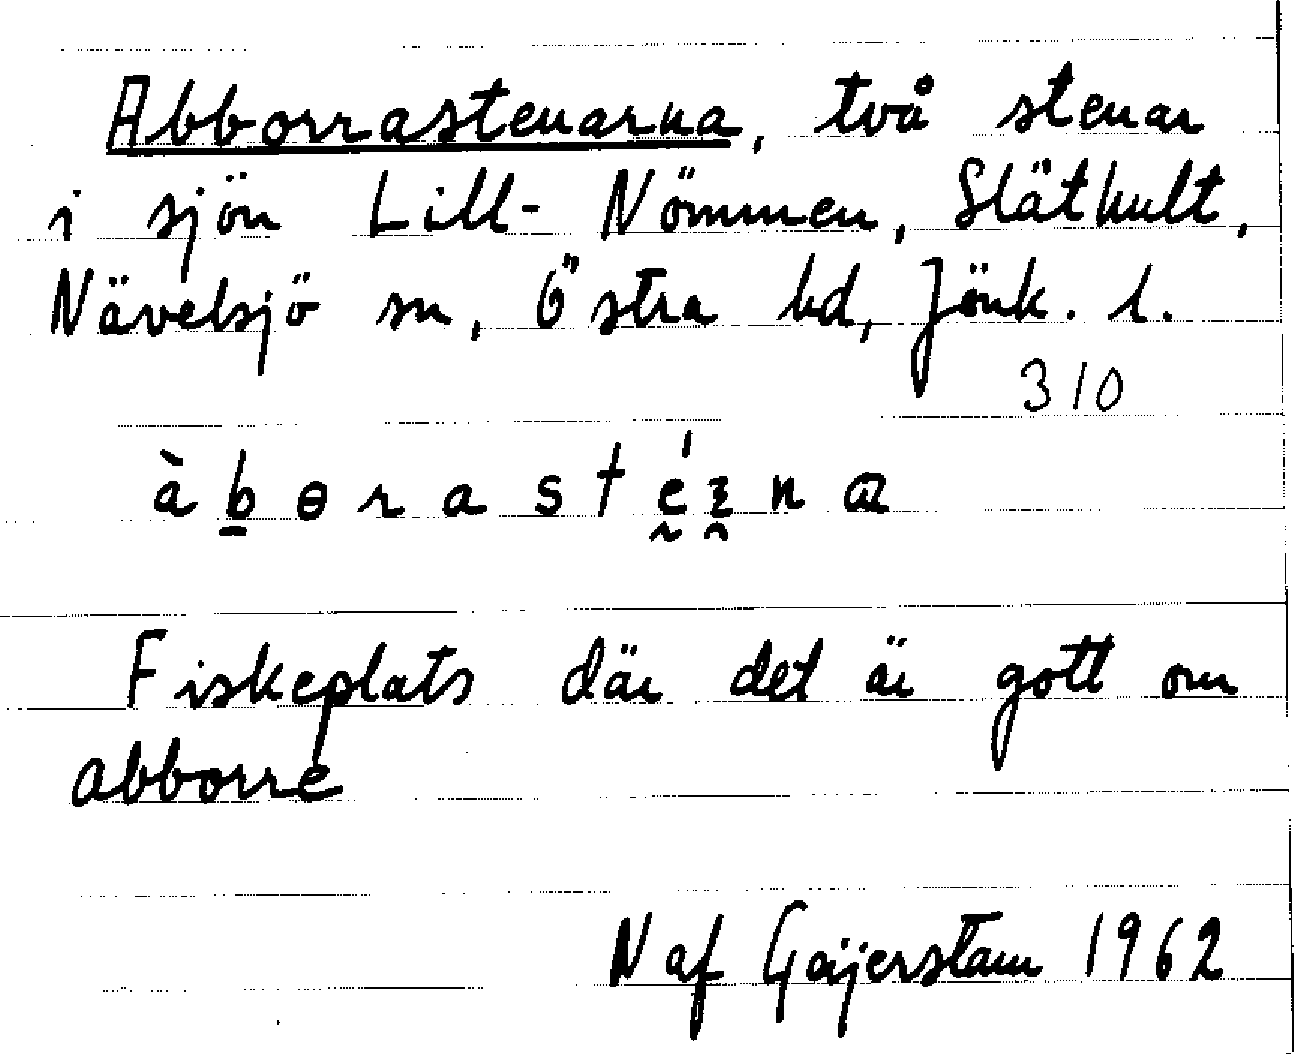 Abborrastenarna, två stenar
i sjön Lill-Nömmen, Släthult,
Nävelsjö sn, Östra hd, Jönk. l.
310
àb̲ɵrastḛ́ᴈ̯nɑ
Fiskeplats där det är gott om
abborre
N af Geijerstam 1962